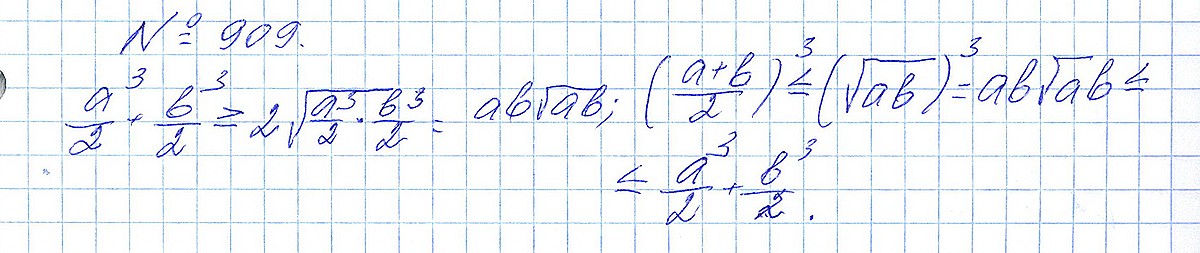 № 909.
a³/2 + b³/2 ≥ 2√(a³/2 · b³/2) = ab√ab; ((a+b)/2)³ ≤ (√ab)³ = ab√ab ≤
≤ a³/2 + b³/2.